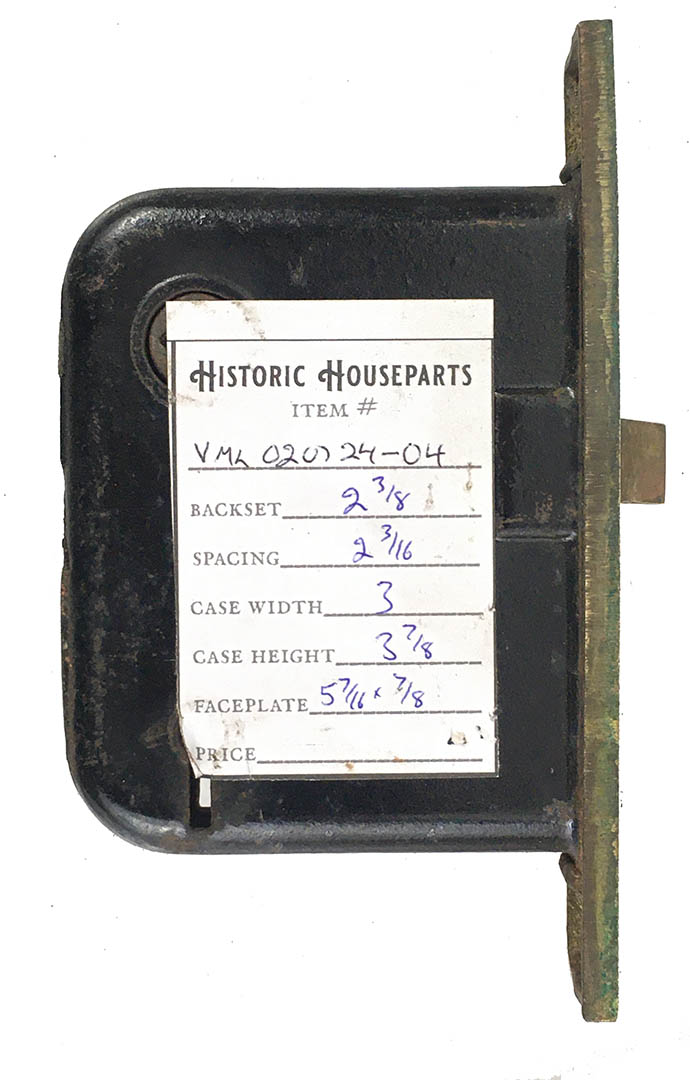 HISTORIC HOUSEPARTS
ITEM #
VML 020724-04
BACKSET 2 3/8
SPACING 2 3/16
CASE WIDTH 3
CASE HEIGHT 3 7/8
FACEPLATE 5 7/16 x 7/8
PRICE